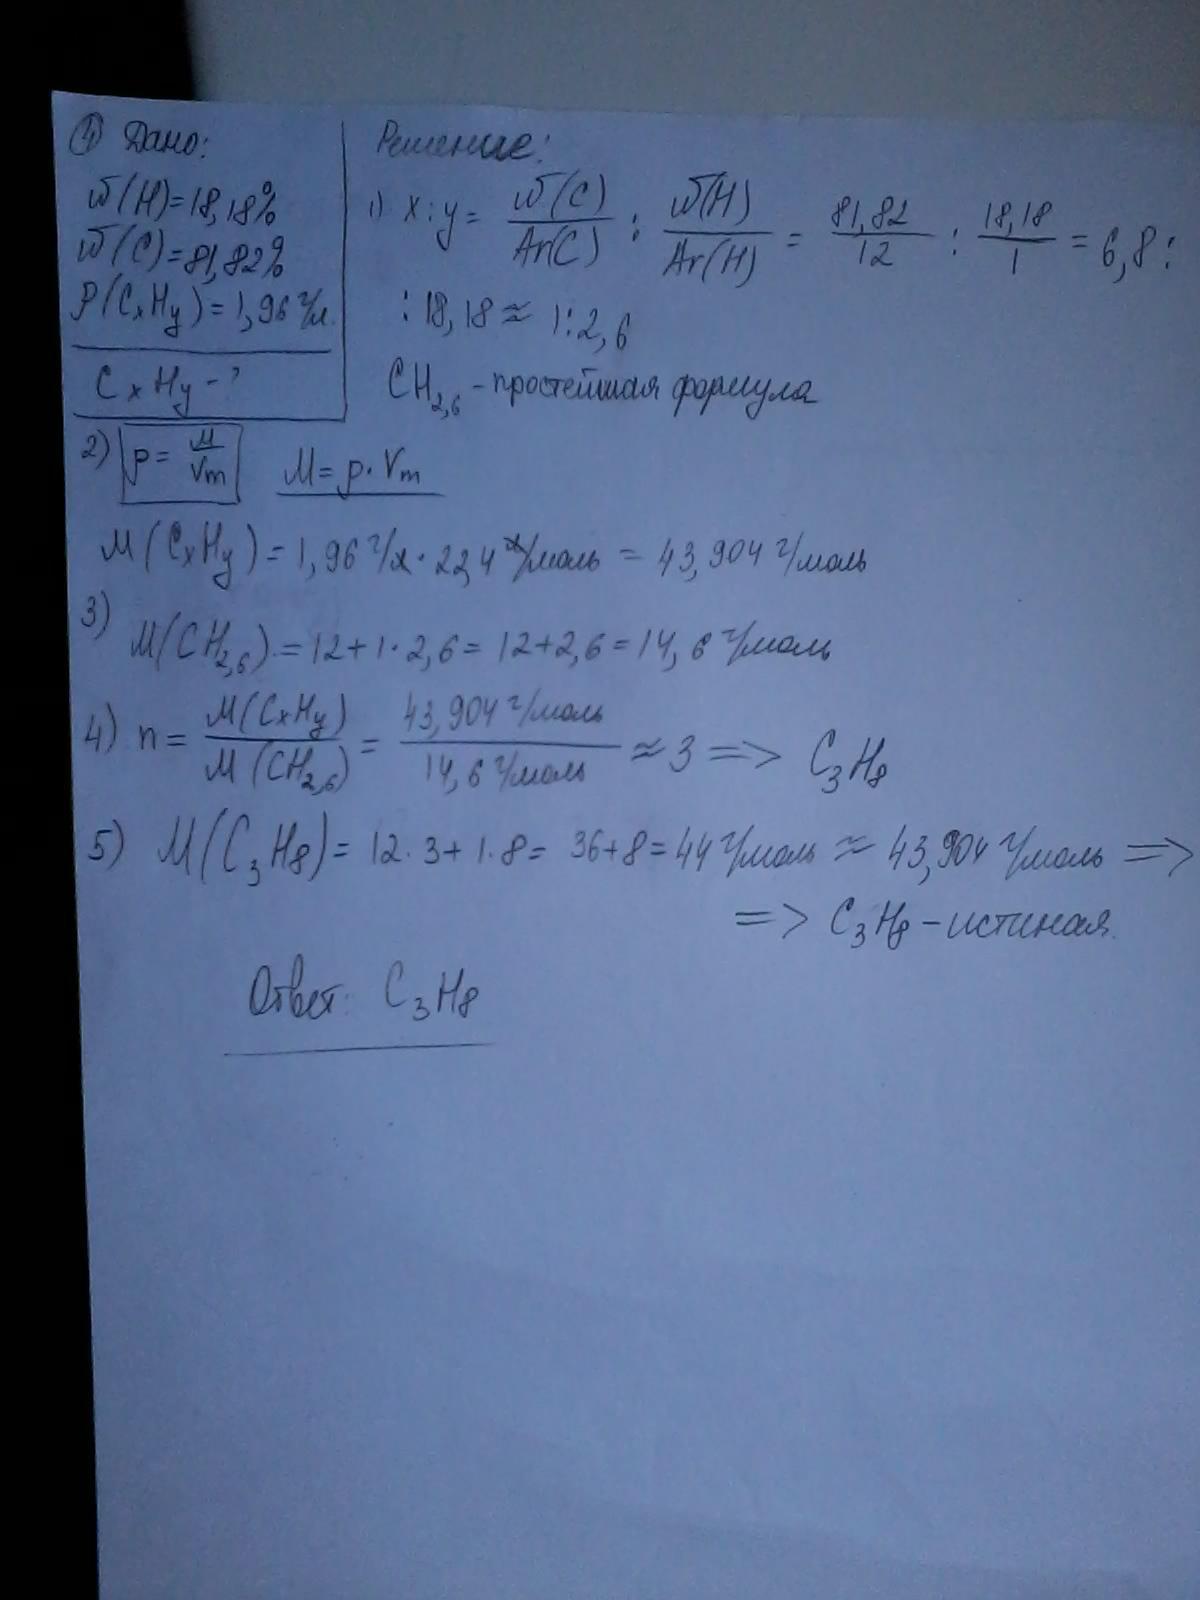 ① Дано:
ω(H)=18,18%
ω(C)=81,82%
ρ(CₓHᵧ)=1,96 г/л.
CₓHᵧ-?
Решение:
1) x:y = ω(C)/Ar(C) : ω(H)/Ar(H) = 81,82/12 : 18,18/1 = 6,8:
:18,18 ≈ 1:2,6
CH₂,₆ - простейшая формула
2) ρ = M/Vm M = ρ·Vm
M(CₓHᵧ) = 1,96 г/л · 22,4 л/моль = 43,904 г/моль
3) M(CH₂,₆) = 12+1·2,6 = 12+2,6 = 14,6 г/моль
4) n = M(CₓHᵧ)/M(CH₂,₆) = 43,904 г/моль/14,6 г/моль ≈ 3 => C₃H₈
5) M(C₃H₈) = 12·3+1·8 = 36+8 = 44 г/моль ≈ 43,904 г/моль =>
=> C₃H₈ - истиная.
Ответ: C₃H₈